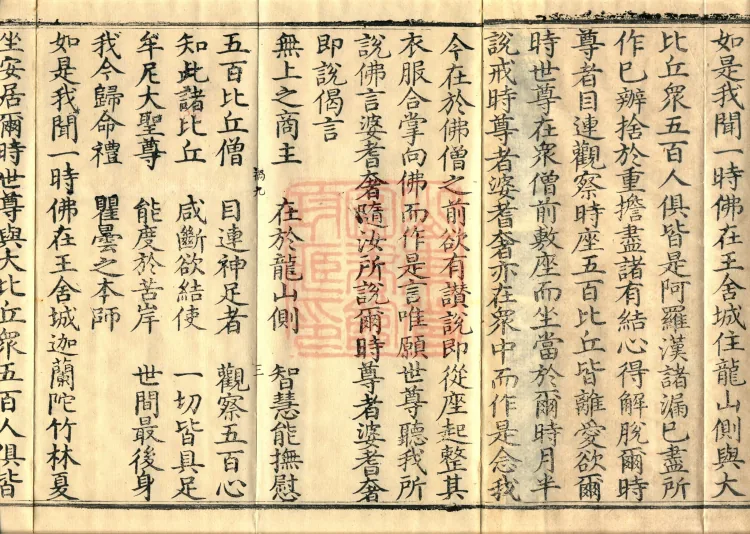 如是我聞一時佛在王舍城住龍山側與大
比丘眾五百人俱皆是阿羅漢諸漏已盡所
作已辦捨於重擔盡諸有結心得解脫爾時
尊者目連觀察時座五百比丘皆離愛欲爾
時世尊在眾僧前敷座而坐當於爾時月半
說戒時尊者婆耆奢亦在眾中而作是念我
今在於佛僧之前欲有讚說即從座起整其
衣服合掌向佛而作是言唯願世尊聽我所
說佛言婆耆奢隨汝所說爾時尊者婆耆奢
即說偈言
無上之商主 在於龍山側 智慧能撫慰
三
五百比丘僧 目連神足者 觀察五百心
知此諸比丘 咸斷欲結使 一切皆具足
牟尼大聖尊 能度於苦岸 世間最後身
我今歸命禮 瞿曇之本師
如是我聞一時佛在王舍城迦蘭陀竹林夏
坐安居爾時世尊與大比丘眾五百人俱皆